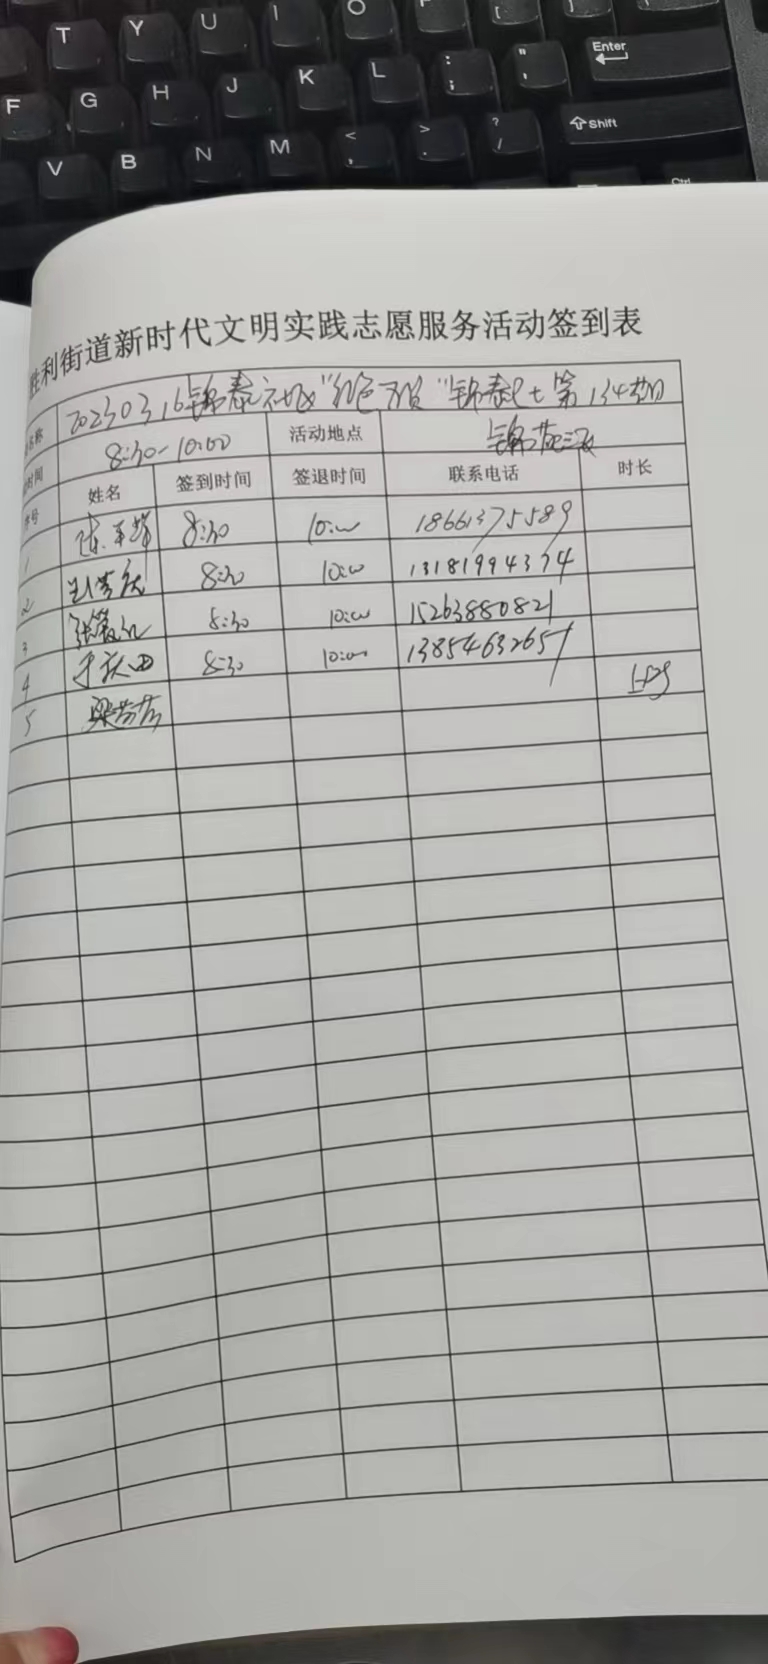 T Y U I O
Enter
F G H J K L : ; " '
Shift
V B N M < , > . ? /
Ctrl
胜利街道新时代文明实践志愿服务活动签到表
名称 20230316锦泰社区"红色 "锦泰 第134期
时间 8:30-10:00 活动地点 锦苑三区
序号 姓名 签到时间 签退时间 联系电话 时长
1 8:30 10:00 18661375589
2 8:30 10:00 13181994374
3 8:30 10:00 15263880821
4 于 8:30 10:00 13854632657
5 梁芳芳